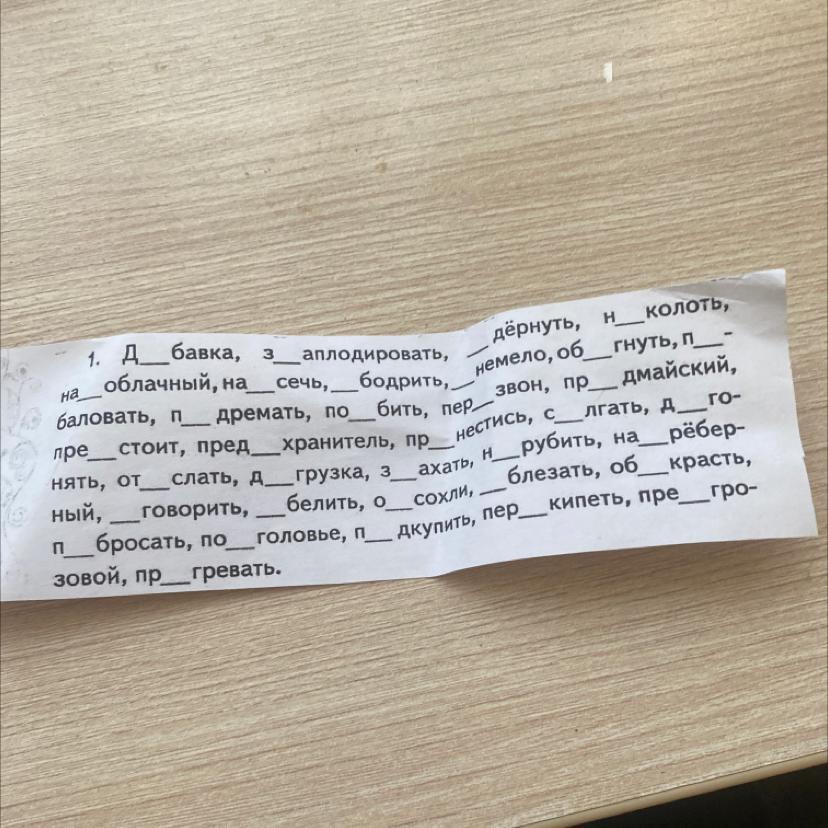 1. Д__бавка, з__аплодировать, __дёрнуть, н__колоть,
на__облачный, на__сечь, __бодрить, __немело, об__гнуть, п__-
баловать, п__дремать, по__бить, пер__звон, пр__дмайский,
пре__стоит, пред__хранитель, пр__нестись, с__лгать, д__го-
нять, от__слать, д__грузка, з__ахать, н__рубить, на__рёбер-
ный, __говорить, __белить, о__сохли, __блезать, об__красть,
п__бросать, по__головье, п__дкупить, пер__кипеть, пре__гро-
зовой, пр__гревать.